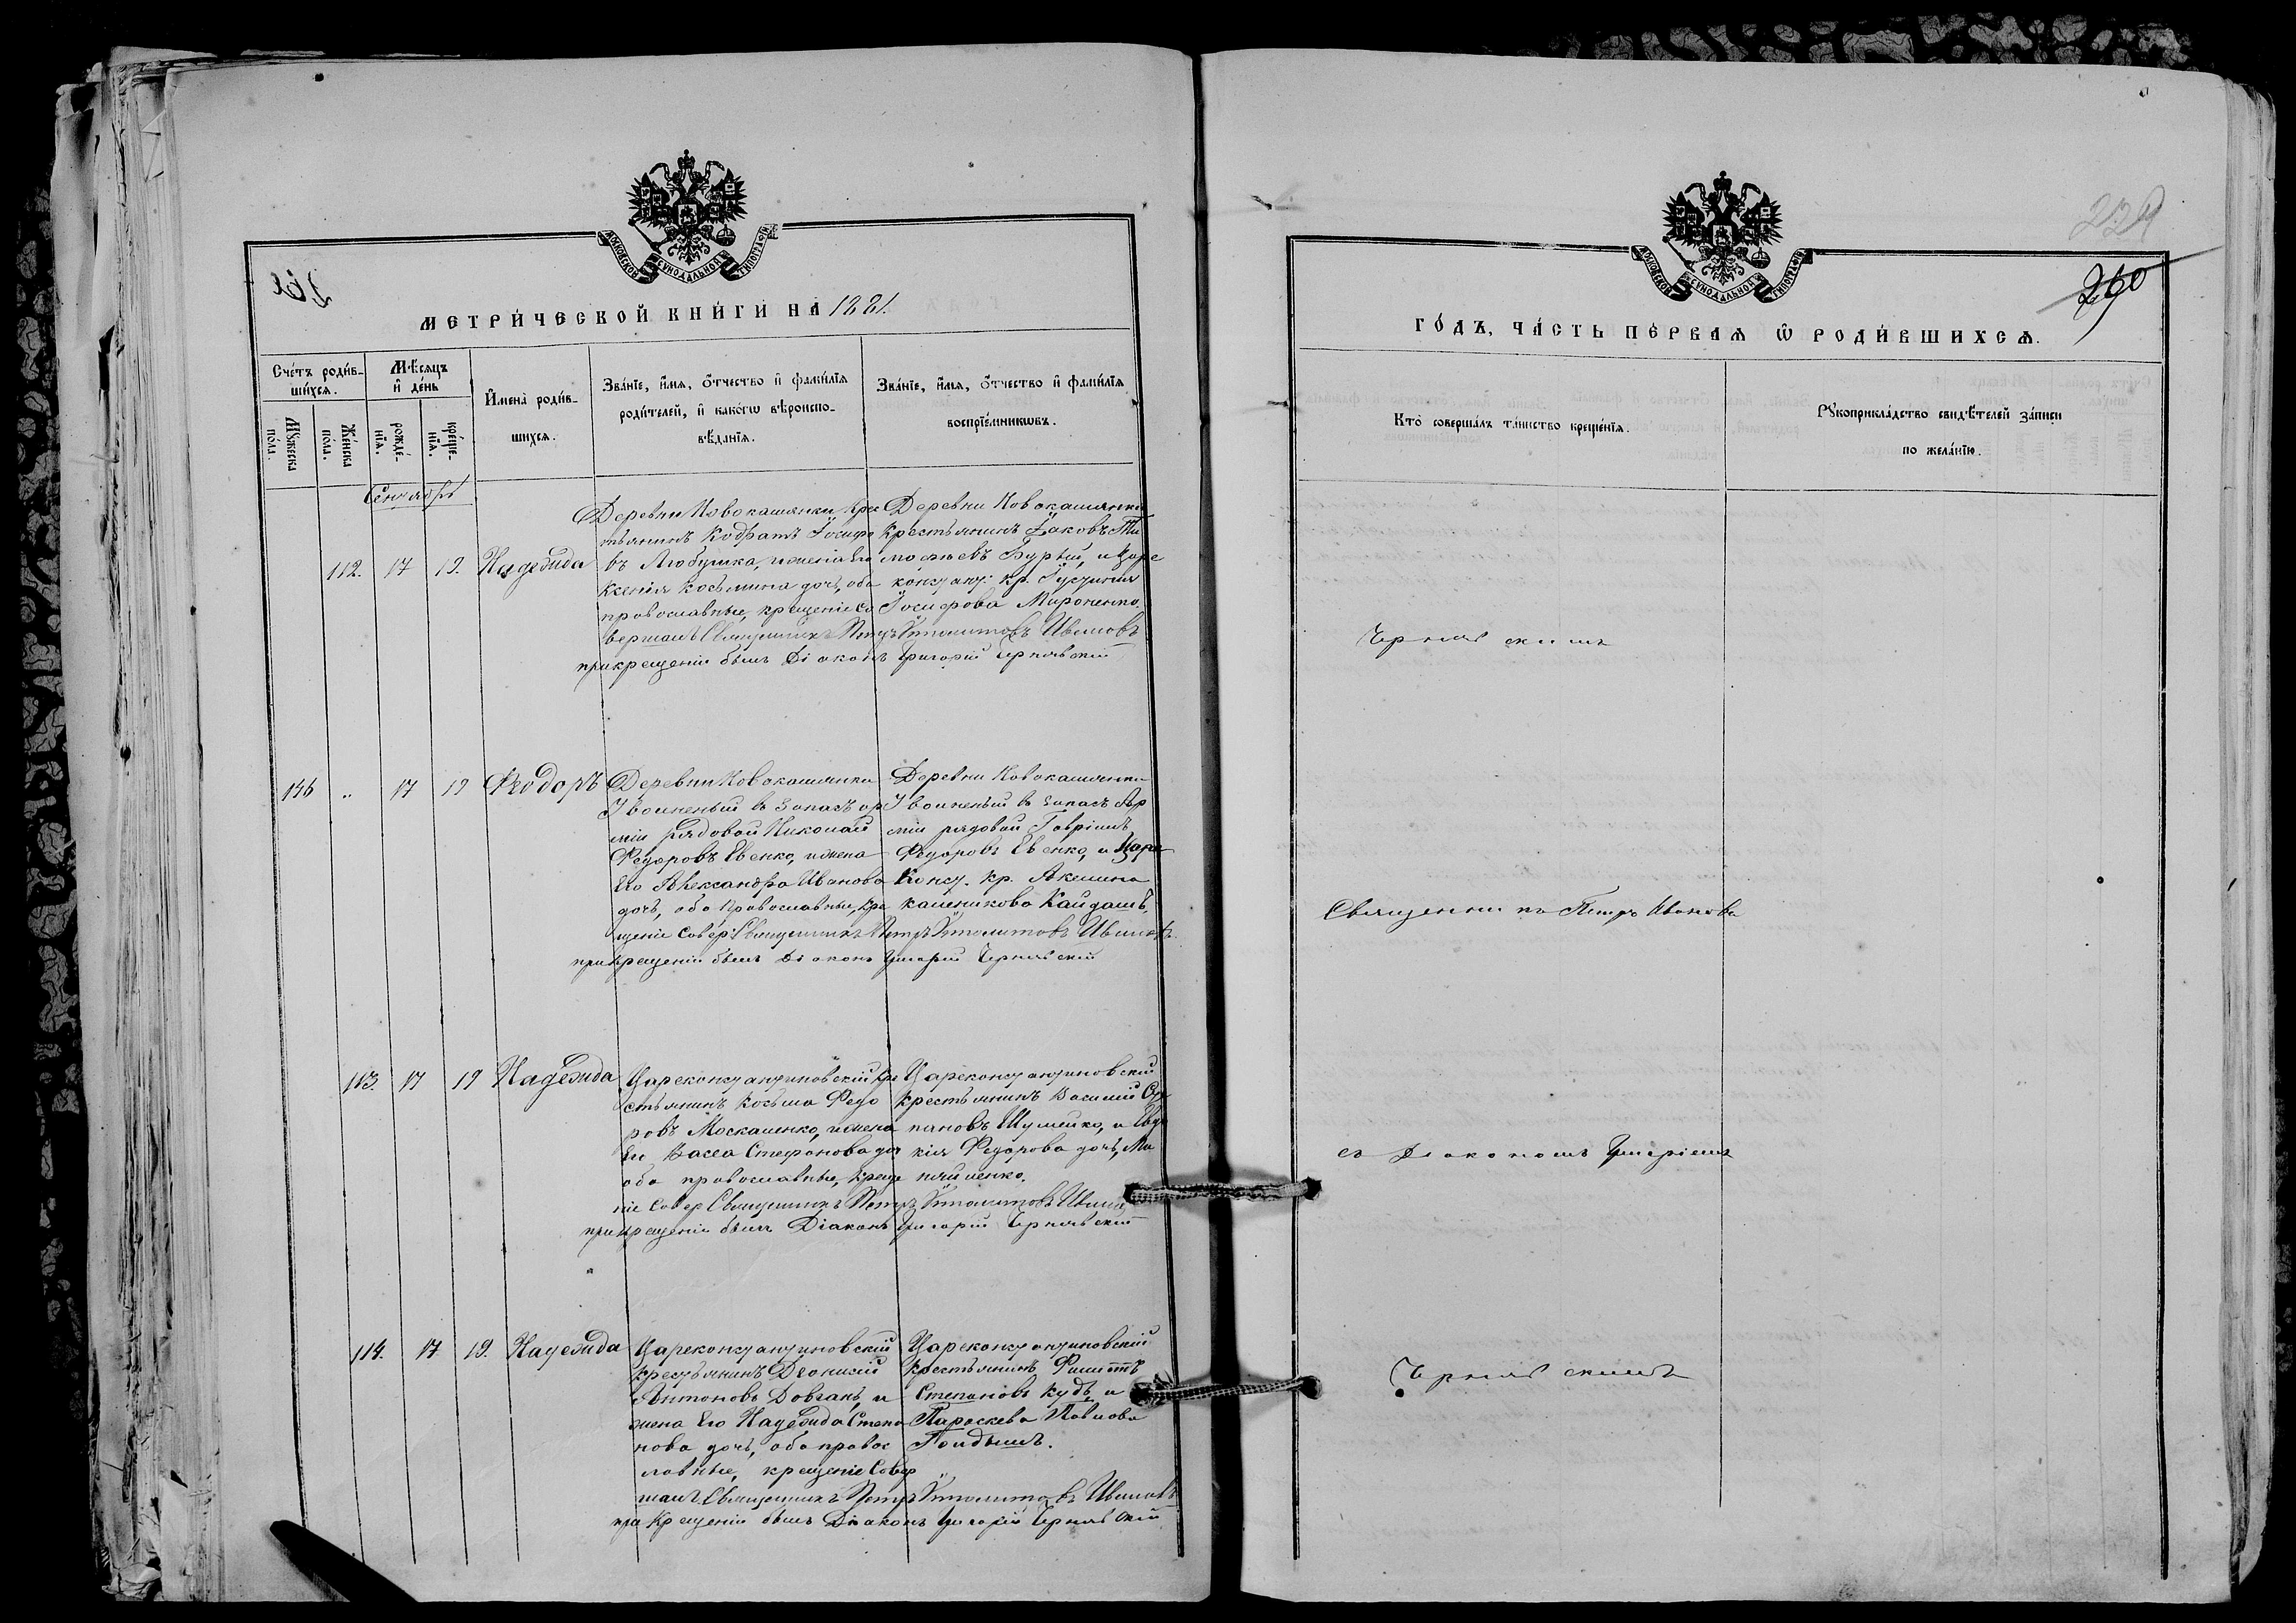 МОСКОВСКОЙ СѴНОДАЛЬНОЙ ТИПОГРАФІИ
261
МЕТРИ́ЧЕСКОЙ КНИ́ГИ НА 1881.
Сче́тъ роди́в-
ши́хся.
Мѣ́сяцъ
и де́нь
Мꙋ́жеска
по́ла.
Же́нска
по́ла.
рожде́-
нїя.
креще́-
нїя.
И҆мена̀ роди́в-
шихся.
Зва́нїе, и҆́мя, о҆́тчество и҆ фами́лїя
роди́телей, и҆ како́гѡ вѣроиспо-
вѣ́данїя.
Зва́нїе, и҆́мя, о҆́тчество и҆ фами́лїя
воспрїе́мникѡвъ.
Сентябрь
112. 17 19. Надежда
Деревни Новокашянки кре
стьянинъ Кодратъ Іосифо
въ Любушка, и жена Его
Ксенія Косьмина дочь, оба
православные, крещеніе Со
вершалъ Священникъ Петръ Ипполитовъ Ивановъ
при крещеніи былъ Діаконъ Григорій Чернявскій
Деревни Новокашянки
Крестьянинъ Іаковъ Ти
мофеевъ Бурый, и Царе
констант: кр. Іустинія
Іосифова Мироненко.
146 „ 17 19 Ѳеодоръ
Деревни Новокашянки
Уволенный въ Запасъ ар
міи рядовой Николай
Федоровъ Евенко, и жена
Его Александра Иванова
дочь, оба Православные, кре
щеніе Совер: Священникъ Петръ Ипполитовъ Ивановъ.
при крещеніи былъ Діаконъ Григорій Чернявскій
Деревни Новокашянки
Уволенный въ Запасъ Ар
міи рядовой Гавріилъ
Федоровъ Евенко, и Царе
Конст. кр. Акелина
Калиникова Кайдашъ,
113. 17 19 Надежда
Цареконстантиновскій кре
стьянинъ Косьма Федо
ровъ Москаленко, и жена
Его Васса Стефанова доч
оба православные, креще
ніе Совер Священникъ Петръ Ипполитовъ Ивановъ
при крещеніи былъ Діаконъ Григорій Чернявскій
Цареконстантиновскій
крестьянинъ Василій Сте
пановъ Шумейко, и Евдо
кія Федорова дочь,
114. 17 19. Надежда
Цареконстантиновскій
крестьянинъ Діонисій
Антоновъ Довганъ, и
жена Его Надежда Степа
нова дочь, оба правос
лавные, крещеніе Совер
шалъ Священникъ Петръ Ипполитовъ Ивановъ
при Крещеніи былъ Діаконъ Григорій Чернявскій
Цареконстантиновскій
крестьянинъ Филиппъ
Степановъ Кудь, и
Параскева Павлова
МОСКОВСКОЙ СѴНОДАЛЬНОЙ ТИПОГРАФІИ
229
260
ГО́ДЪ, ЧА́СТЬ ПЕ́РВАЯ Ѡ҆ РОДИ́ВШИХСЯ.
Кто̀ соверша́лъ та́инство креще́нїя.
Рꙋкоприкла́дство свидѣ́телей за́писи
по жела́нїю.
Чернявскимъ
Священникъ Петръ Ивановъ
съ Діакономъ Григоріемъ
Чернявскимъ